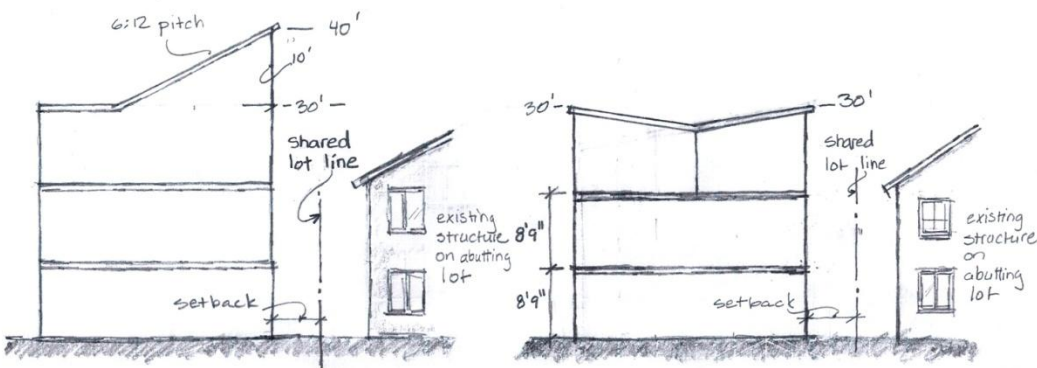 6:12 pitch
40'
10'
30'
shared
lot line
existing
structure
on abutting
lot
setback
30'
30'
shared
lot line
8'9"
8'9"
existing
structure
on
abutting
lot
setback